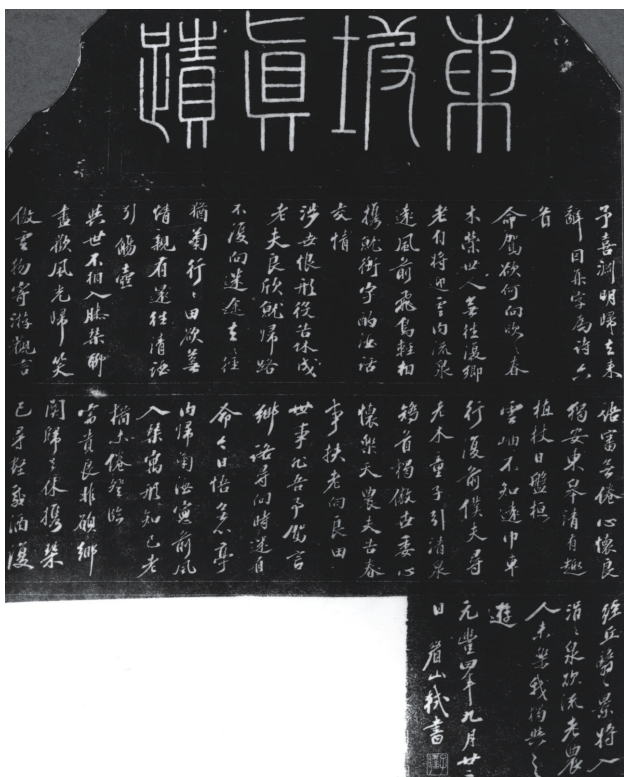 東坡眞蹟
予喜淵明歸去來
辭因集字為詩六
首
命駕欲何向欣々春
木榮世人無往復鄉
老有將迎雲內流泉
遠風前飛鳥輕相
攜就衡宇酌酒話
交情
涉世恨形役告休成
老夫良欣就歸路
不復向迷途去徑
猶菊行々田欲蕪
情親有還往清酒
引觴壺
與世不相入膝琴聊
盡歡風光歸笑
傲雲物寄游觀言
話審無倦心懷良
獨安東皋清有趣
植杖日盤桓
雲岫不知遠巾車
行復前僕夫尋
老木童子引清泉
矯首獨傲世委心
懷樂天農夫告春
事扶老向良田
世事非吾事駕言
鄉路尋向時迷自
命今日悟無心亭
內歸菊酒窗前風
入琴寓形知已老
猶未倦登臨
富貴良非願鄉
關歸去休攜琴
已尋壑載酒復
經丘翳々景將入
涓々泉欲流老農
人未樂我獨與之
遊
元豐四年九月廿二
日眉山軾書